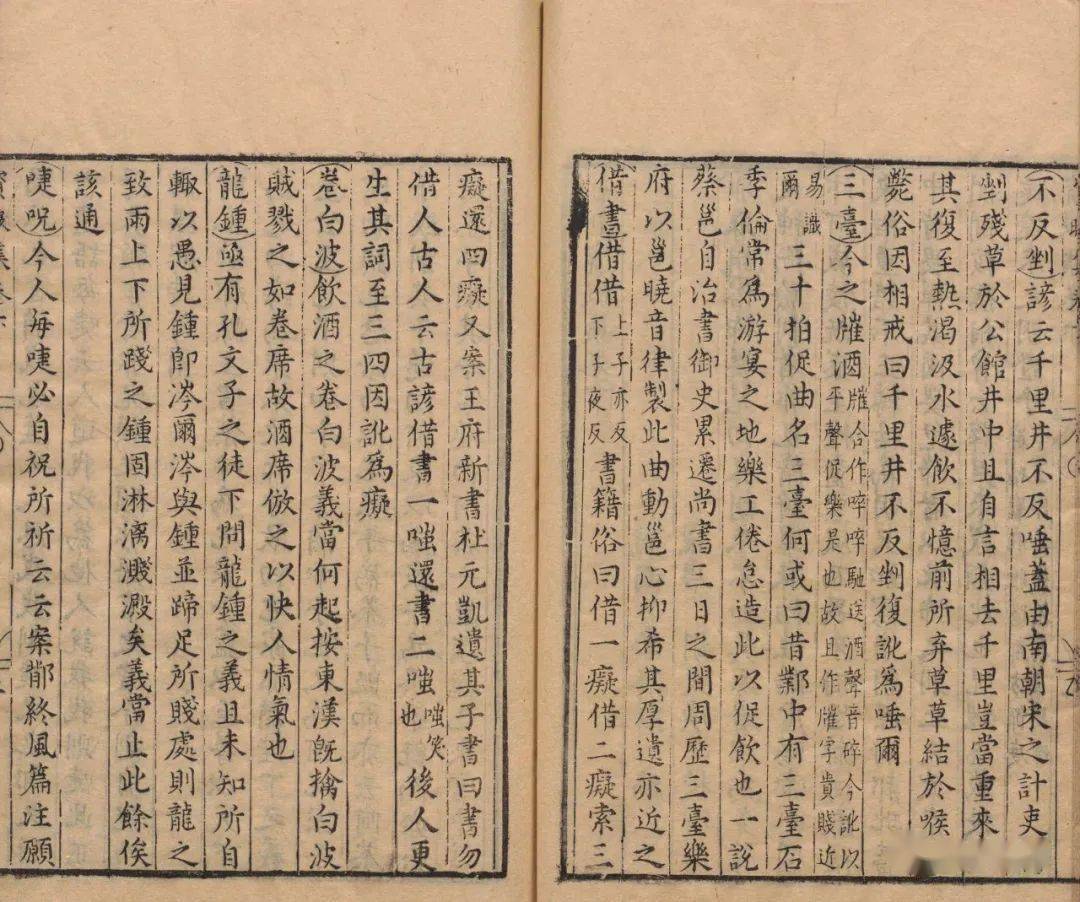 不反剉諺云千里井不反唾蓋由南朝宋之計吏
剉殘草於公館井中且自言相去千里豈當重來
其復至熱渴汲水遽飲不憶前所弃草草結於喉
斃俗因相戒曰千里井不反剉復訛爲唾爾
三臺今之嶉酒嶉合作啐啐馳送酒聲音碎今訛以平聲促樂是也故且作嶉字貴賤近
易識爾三十拍促曲名三臺何或曰昔鄴中有三臺石
季倫常爲游宴之地樂工倦怠造此以促飲也一說
蔡邕自治書御史累遷尚書三日之間周歷三臺樂
府以邕曉音律製此曲動邕心抑希其厚遺亦近之
借書借借上子亦反下子夜反書籍俗曰借一癡借二癡索三
癡還四癡又案王府新書杜元凱遺其子書曰書勿
借人古人云古諺借書一嗤還書二嗤嗤笑也後人更
生其詞至三四因訛爲癡
卷白波飲酒之卷白波義當何起按東漢旣擒白波
賊戮之如卷席故酒席倣之以快人情氣也
龍鍾亟有孔文子之徒下問龍鍾之義且未知所自
輙以愚見鍾卽涔爾涔與鍾並蹄足所踐處則龍之
致雨上下所踐之鍾固淋漓濺澱矣義當止此餘俟
該通
啑呪今人每啑必自祝所祈云云案鄁終風篇注願